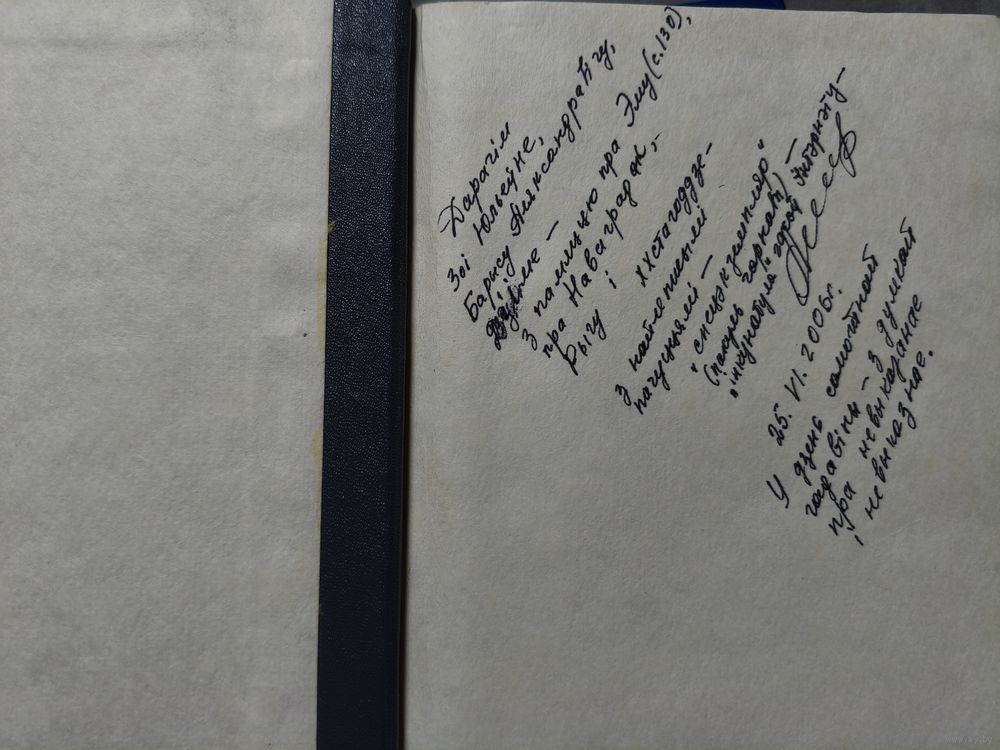 Дарагім
Зоі Юльеўне,
Барысу Аляксандравічу,
Дзіме –
З памяццю пра Эму (с.130),
пра Наваградак,
Рыгу і ХХстагоддзе –
з найлепшымі
пачуццямі –
"спецэкзэмпляр"
(пакуль гарнаты,
"інкунабула" эпохі Інтэрнэту –
25.VI.2006г.
У дзень самотнай
гадавіны – з думкай
пра невыказанае
і невыказнае.